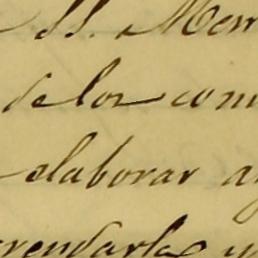 SS. Mem
de los com
elaborar a
rendarles